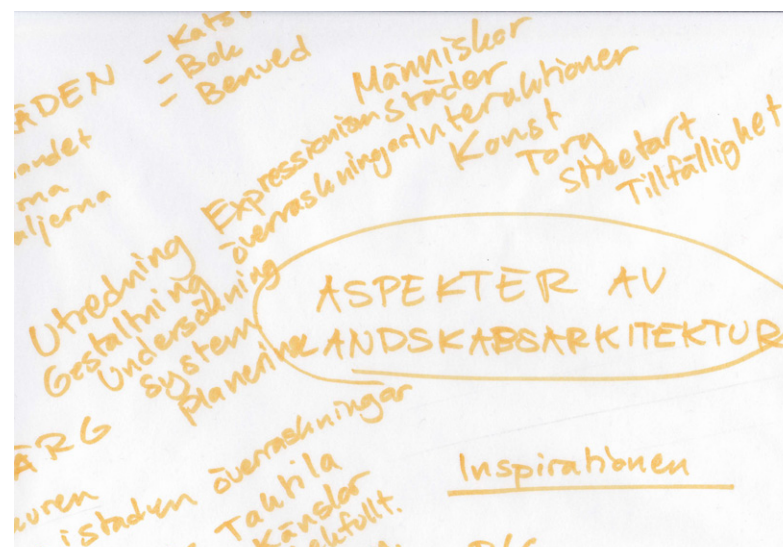 - Katsu
ÄDEN - Bok
- Benved
andet
rna
aljerna
Människor
Expressionism städer
överraskningar Interaktioner
Konst
Torg
Streetart
Tillfällighet
Utredning
Gestaltning
Undersökning
system
planering
ASPEKTER AV
LANDSKABSARKITEKTUR
ÄRG
uren
i staden överraskningar
Taktila
Känslor
ekfullt.
Inspirationen